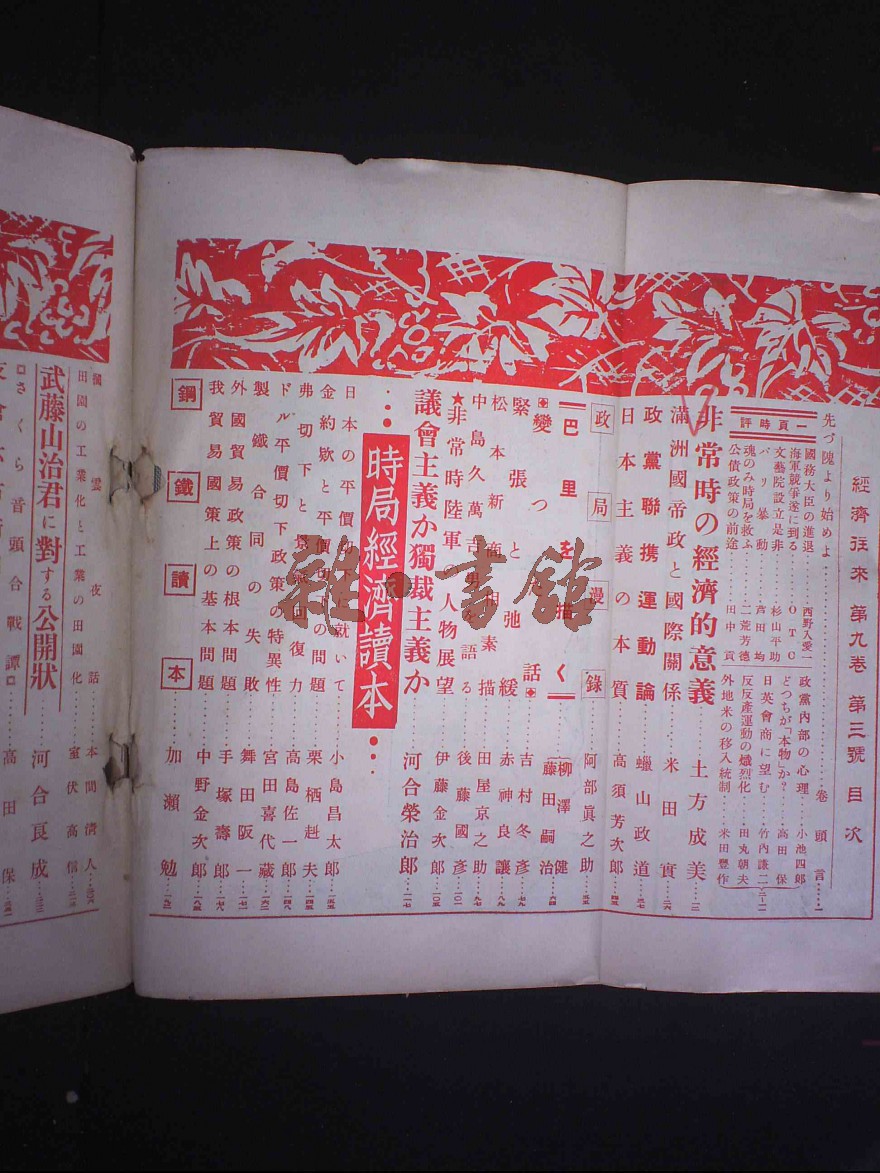 經濟往來 第九卷 第三號 目次
先づ隗より始めよ……卷頭言…一
一頁時評
國務大臣の進退……西野入愛一
海軍競爭遂に到る……OTC
文藝院設立是非……杉山平助
パリ暴動……芦田均
魂のみ時局を救ふ……二荒芳德
公債政策の前途……田中貢
政黨內部の心理……小池四郎
どつちが「本物」か?……高田保
日英會商に望む……竹內謙二
反反產運動の熾烈化……田丸朝夫
外地米の移入統制……米田豐作
非常時の經濟的意義……土方成美
滿洲國帝政と國際關係……米田實
政黨聯携運動論……蠟山政道
日本主義の本質……高須芳次郎
政局漫錄……阿部眞之助
巴里を描く
柳澤健
藤田嗣治
變つた話……吉村冬彥
緊張と弛緩……赤神良讓
松本新商相素描……田屋京之助
中島久萬吉男を語る……後藤國彥
★非常時陸軍人物展望……伊藤金次郎
議會主義か獨裁主義か……河合榮治郎
時局經濟讀本
日本の平價切下に就いて……小島昌太郎
金約款と平價切下の問題……栗栖赳夫
弗切下と貿易回復力……高島佐一郎
ドル平價切下政策の特異性……宮田喜代藏
製鐵合同の失敗……舞田阪一
外國貿易政策の根本問題……手塚壽郎
我貿易國策上の基本問題……中野金次郎
鋼鐵讀本……加瀨勉
本間清人
田園の工業化と工業の田園化……室伏高信
武藤山治君に對する公開狀……河合良成
さくら音頭合戰譚……高田保
雜・書館